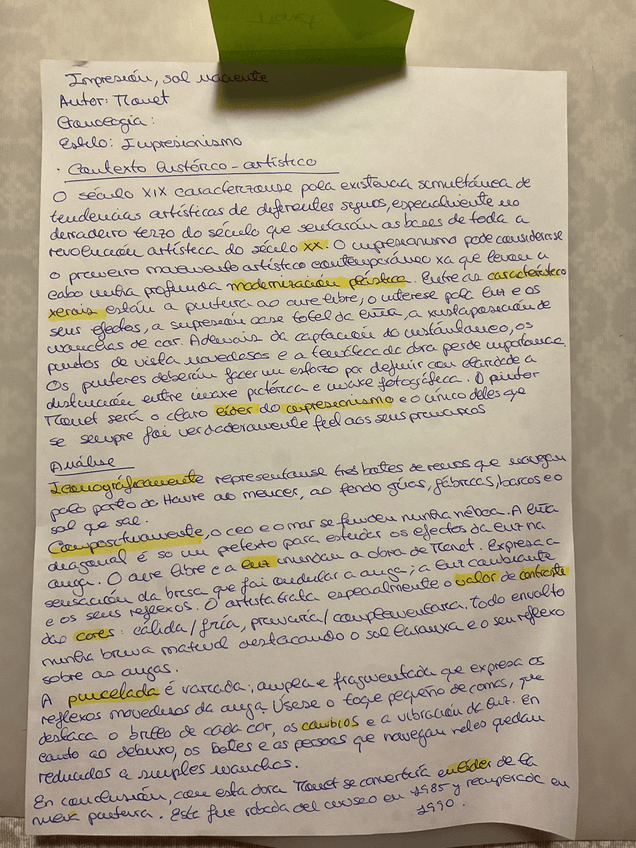 Impresión, sol nacente
Autor: Monet
Cronoloxía:
Estilo: Impresionismo
· Contexto histórico-artístico
O século XIX caracterízase pola existencia simultánea de
tendencias artísticas de diferentes signos, especialmente no
derradeiro terzo do século que sentarán as bases de toda a
revolución artística do século XX. O impresionismo pode considerarse
o primeiro movemento artístico contemporáneo xa que levou a
cabo unha profunda modernización plástica. Entre as características
xerais están a pintura ao aire libre, o interese pola luz e os
seus efectos, a supresión case total da liña, a xustaposición de
manchas de cor. Ademais da captación do instantáneo, os
puntos de vista novedosos e a temática da obra perde importancia.
Os pintores deberán facer un esforzo por definir con claridade a
distinción entre imaxe pictórica e imaxe fotográfica. O pintor
Monet será o claro líder do impresionismo e o único deles que
se sempre foi verdadeiramente feel aos seus principios
Análise
Iconograficamente represéntanse tres botes de remos que navegan
polo porto do Havre ao mencer, ao fondo grúas, fábricas, barcos e o
sol que sae.
Compositivamente, o ceo e o mar se funden nunha néboa. A liña
diagonal é so un pretexto para estudar os efectos da luz na
auga. O aire libre e a luz inundan a obra de Monet. Expresa a
sensación da brisa que fai ondular a auga; a luz cambiante
e os seus reflexos. O artista trata especialmente o valor de contraste
das cores: cálida/fría, primaria/complementaria. Todo envolto
nunha bruma matinal destacando o sol laranxa e o seu reflexo
sobre as augas.
A pincelada é variada: ampla e fragmentada que expresa os
reflexos movedizos da auga. Úsese o toque pequeno de comas, que
destaca o brillo de cada cor, os cambios e a vibración da luz. En
canto ao debuxo, os botes e as persoas que navegan neles quedan
reducidos a simples manchas.
En conclusión, con esta obra Monet se convertiría en líder de la
nueva pintura. Esta fue robada del museo en 1985 y recuperada en
1990.